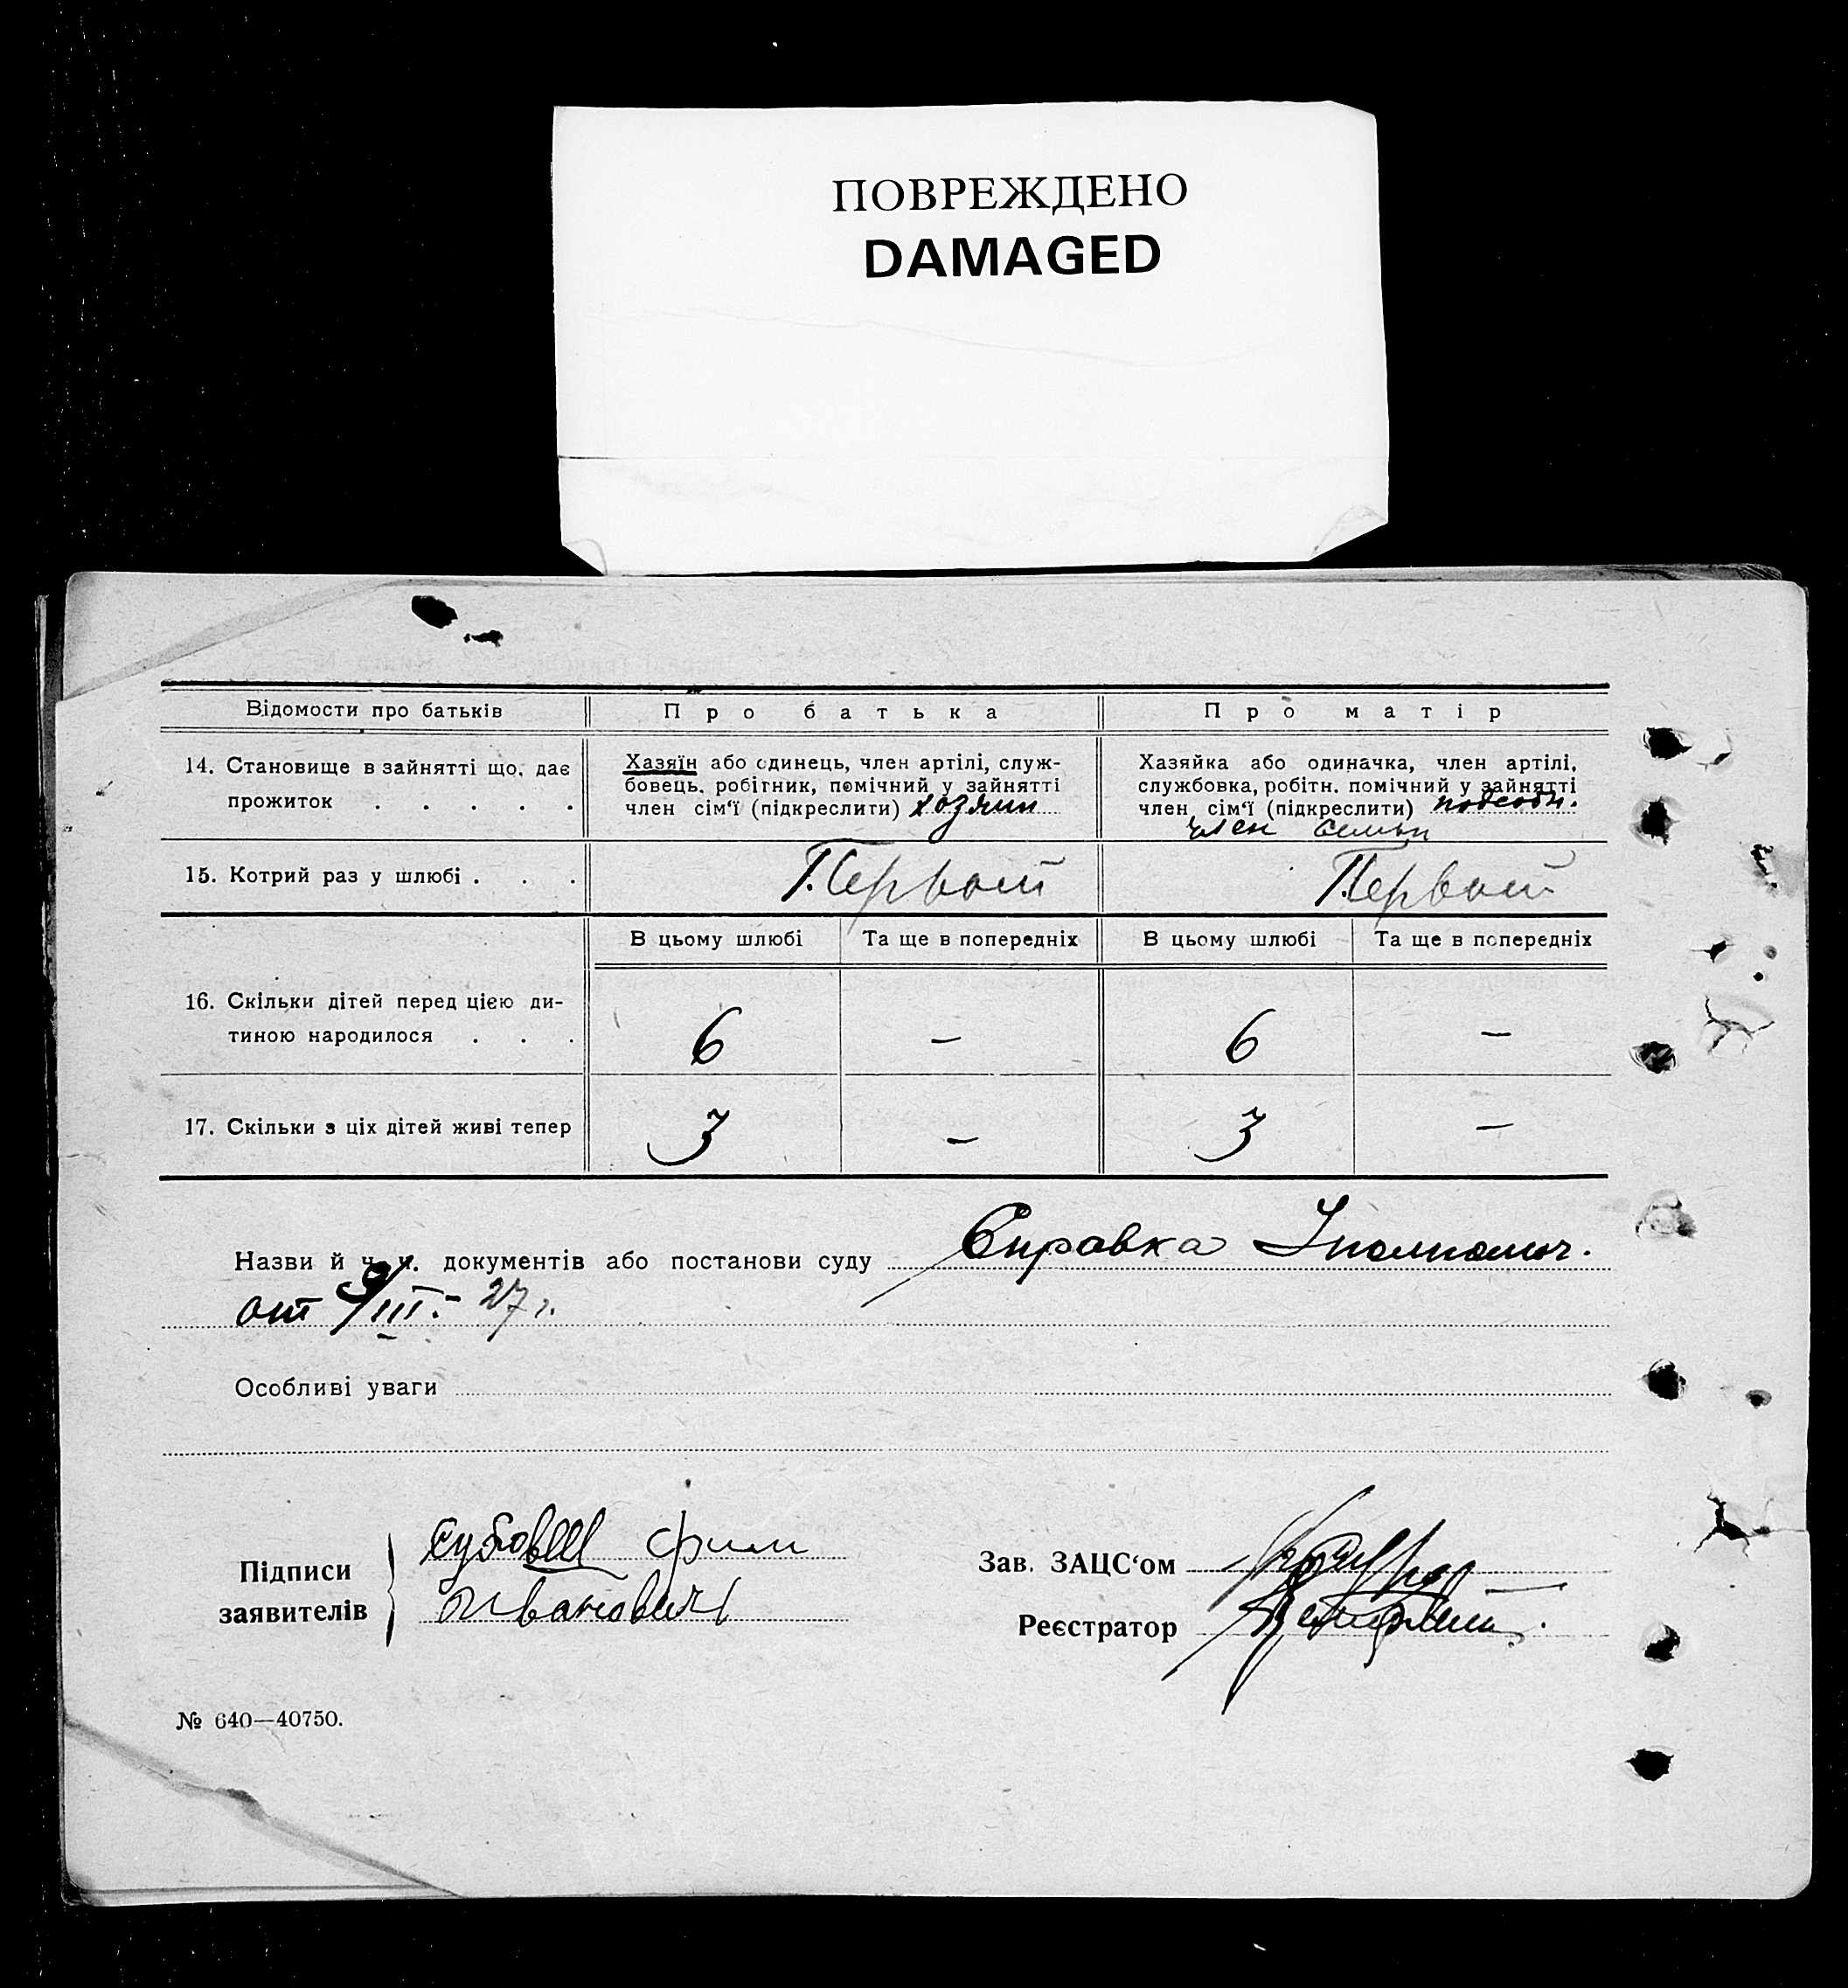 ПОВРЕЖДЕНО
DAMAGED
Відомости про батьків
Про батька
Про матір
14. Становище в зайнятті що, дає
прожиток . . . . .
Хазяїн або одинець, член артілі, служ-
бовець, робітник, помічний у зайнятті
член сім‘ї (підкреслити) хозяин
Хазяйка або одиначка, член артілі,
службовка, робітн. помічний у зайнятті
член сім‘ї (підкреслити) подсобн.
член семьи
15. Котрий раз у шлюбі . . .
Первый
Первый
В цьому шлюбі
Та ще в попередніх
В цьому шлюбі
Та ще в попередніх
16. Скільки дітей перед цією ди-
тиною народилося . . .
6
—
6
—
17. Скільки з ціх дітей живі тепер
3
—
3
—
Назви й ч. ч. документів або постанови суду Справка
от 9/III - 27 г.
Особливі уваги
Підписи
заявителів
Иванович
Зав. ЗАЦС‘ом
Реєстратор
№ 640—40750.